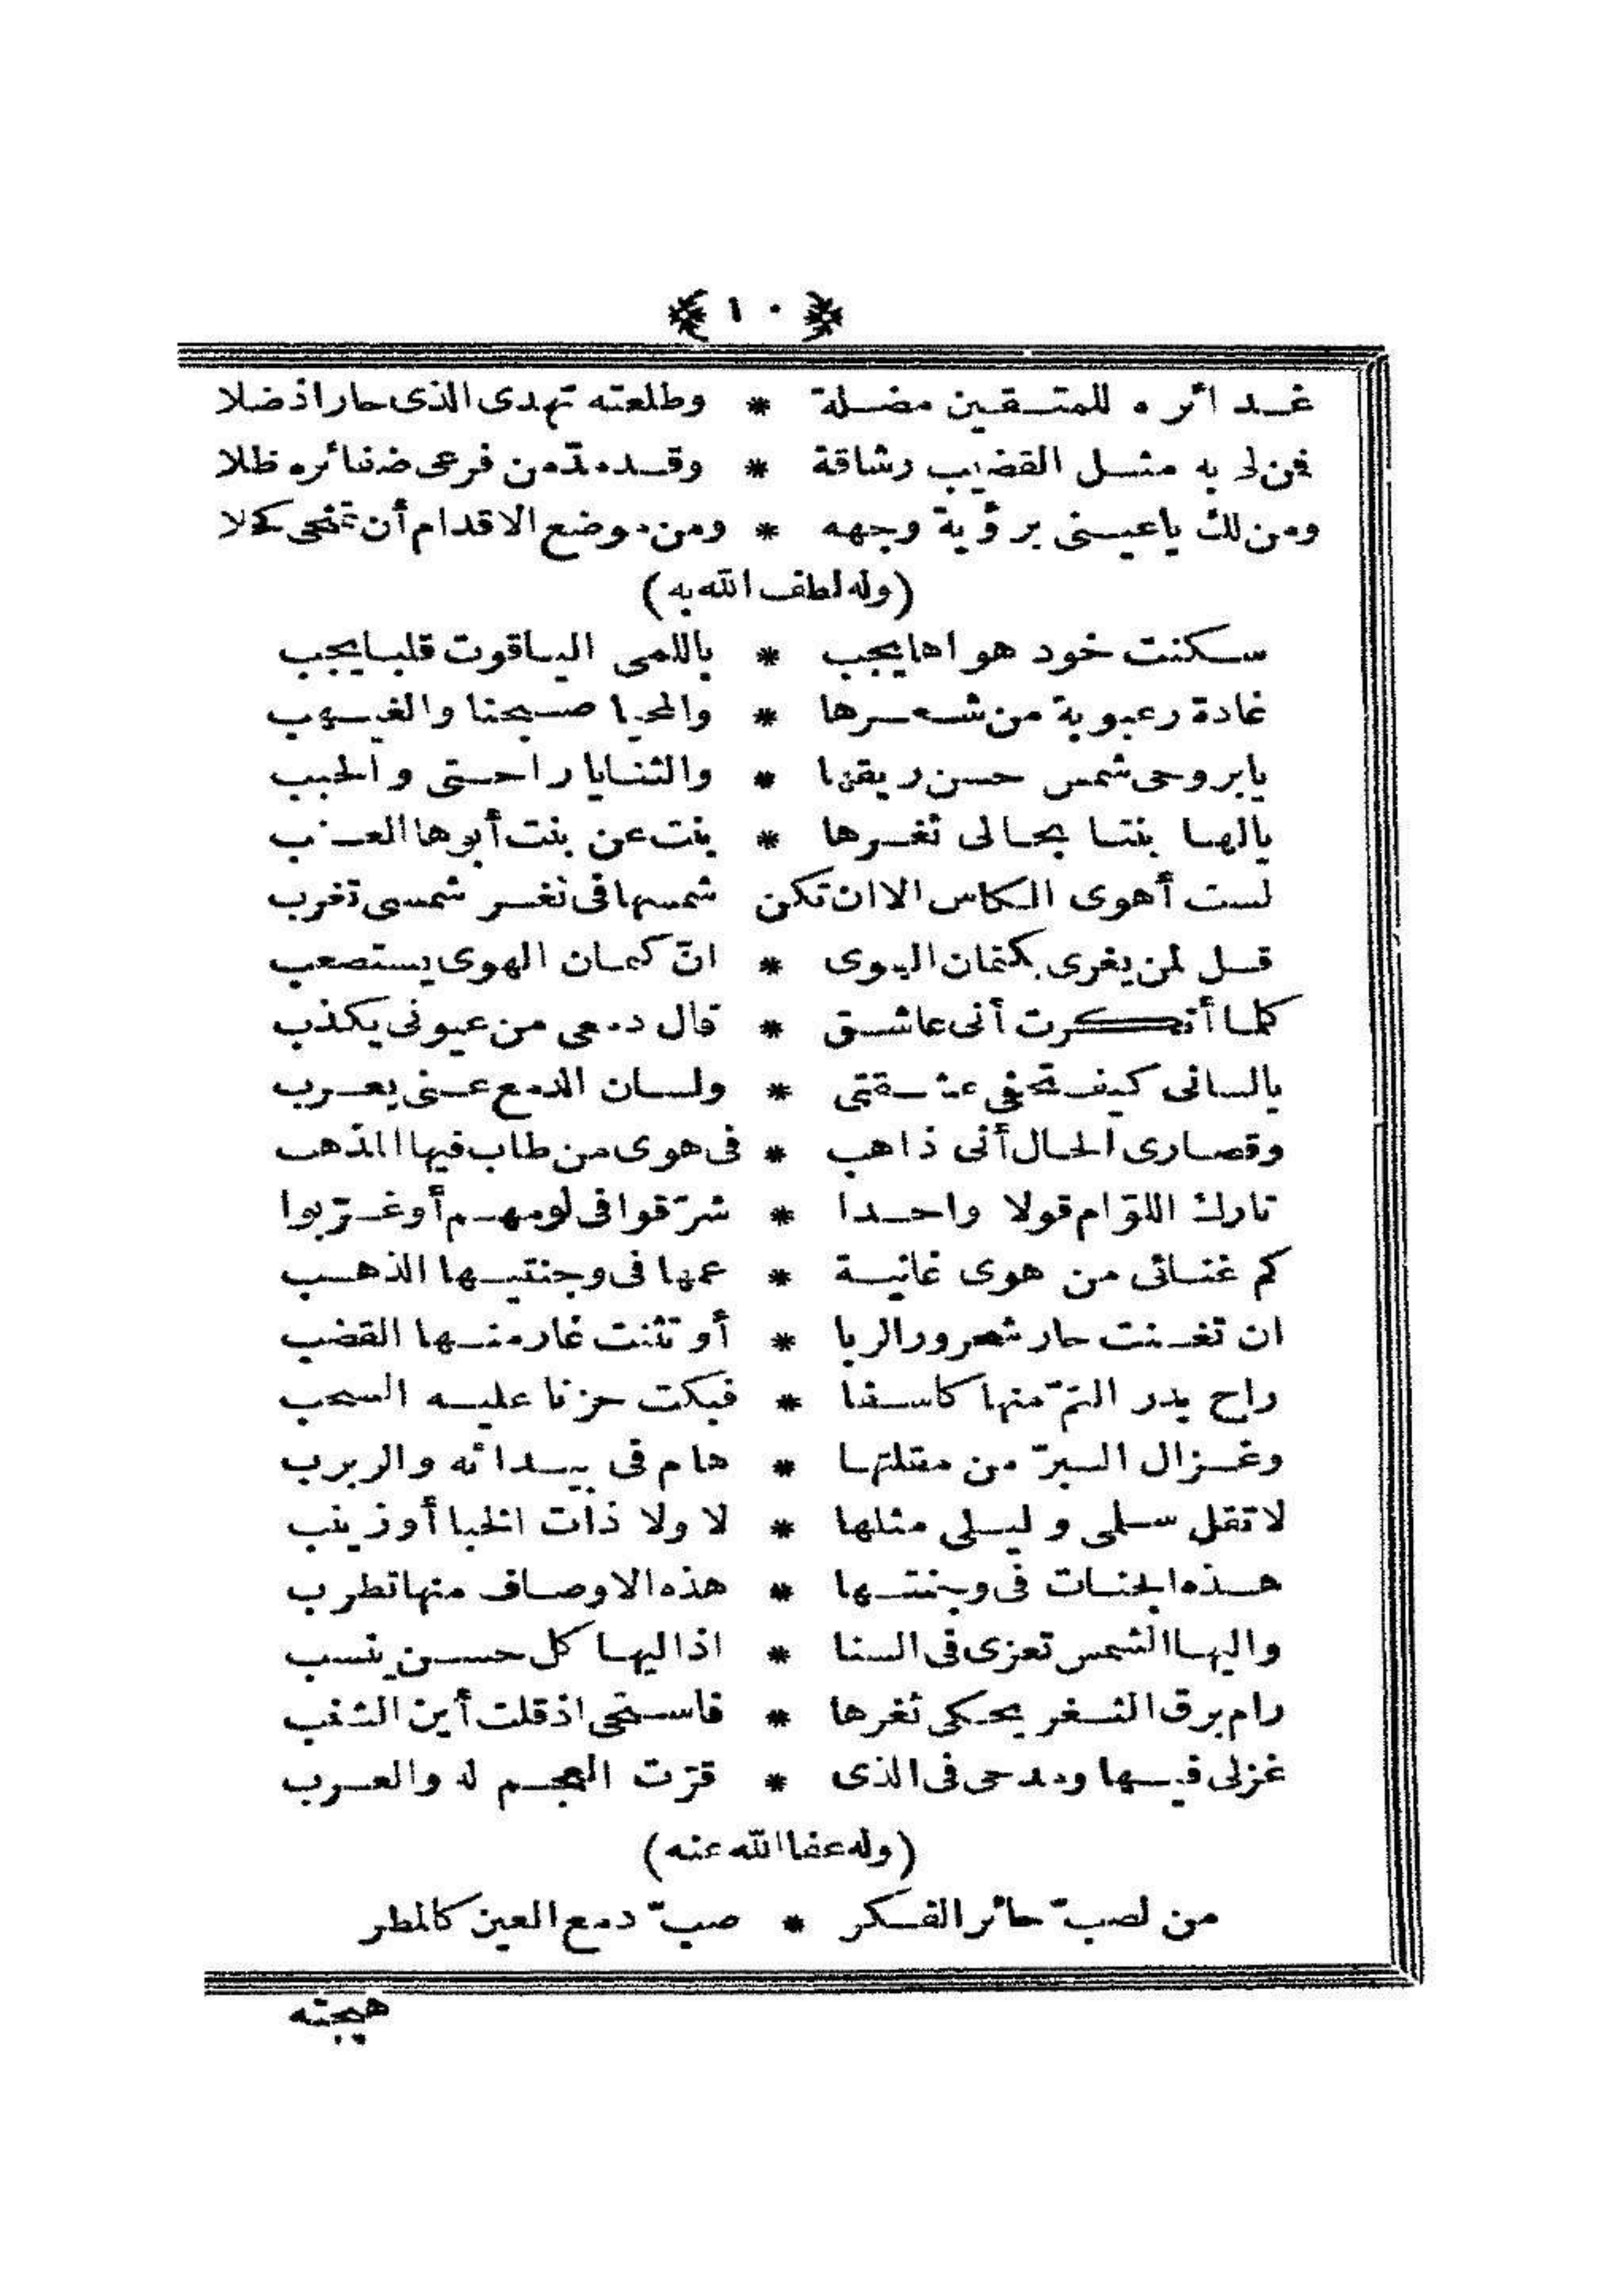 ١٠
غدائره للمتقين مضلة * وطلعته تهدى الذى حار اذ ضلا
فمن لى به مثل القضيب رشاقة * وقد مدّ من فرعى ضفائره ظلا
ومن لك ياعينى برؤية وجهه * ومن موضع الاقدام أن تمنحى كحلا
(وله لطف الله به)
سكنت خود هواها يجب * باللمى الياقوت قلبا يجب
غادة رعبوبة من شعرها * والمحيا صبحنا والغيهب
يابروحى شمس حسن ريقها * والثنايا راحتى والحبب
يالها بنتا بحالى ثغرها * بنت عن بنت أبوها العنب
لست أهوى الكاس الا ان تكن شمسها فى ثغر شمسى تغرب
قل لمن يغرى بكتمان الهوى * انّ كتمان الهوى يستصعب
كلما أنكرت أنى عاشق * قال دمعى من عيونى يكذب
يالسانى كيف تخفى عشقتى * ولسان الدمع عنى يعرب
وقصارى الحال أنى ذاهب * فى هوى من طاب فيها المذهب
تارك اللوّام قولا واحدا * شرّقوا فى لومهم أو غرّبوا
كم غنائى من هوى غانية * عمها فى وجنتيها الذهب
ان تغنت حار شحرور الربا * أو تثنت غار منها القضب
راح بدر التمّ منها كاسفا * فبكت حزنا عليه السحب
وغزال البرّ من مقلتها * هام فى بيدائه والربرب
لا تقل سلمى وليلى مثلها * لا ولا ذات الخبا أو زينب
هذه الجنات فى وجنتها * هذه الاوصاف منها تطرب
واليها الشمس تعزى فى السنا * اذ اليها كل حسن ينسب
رام برق الثغر يحكى ثغرها * فاستحى اذ قلت أين الشنب
غزلى فيها ومدحى فى الذى * قرّت العجم له والعرب
(وله عفا الله عنه)
من لصبّ حائر الفكر * صبّ دمع العين كالمطر
هيجته